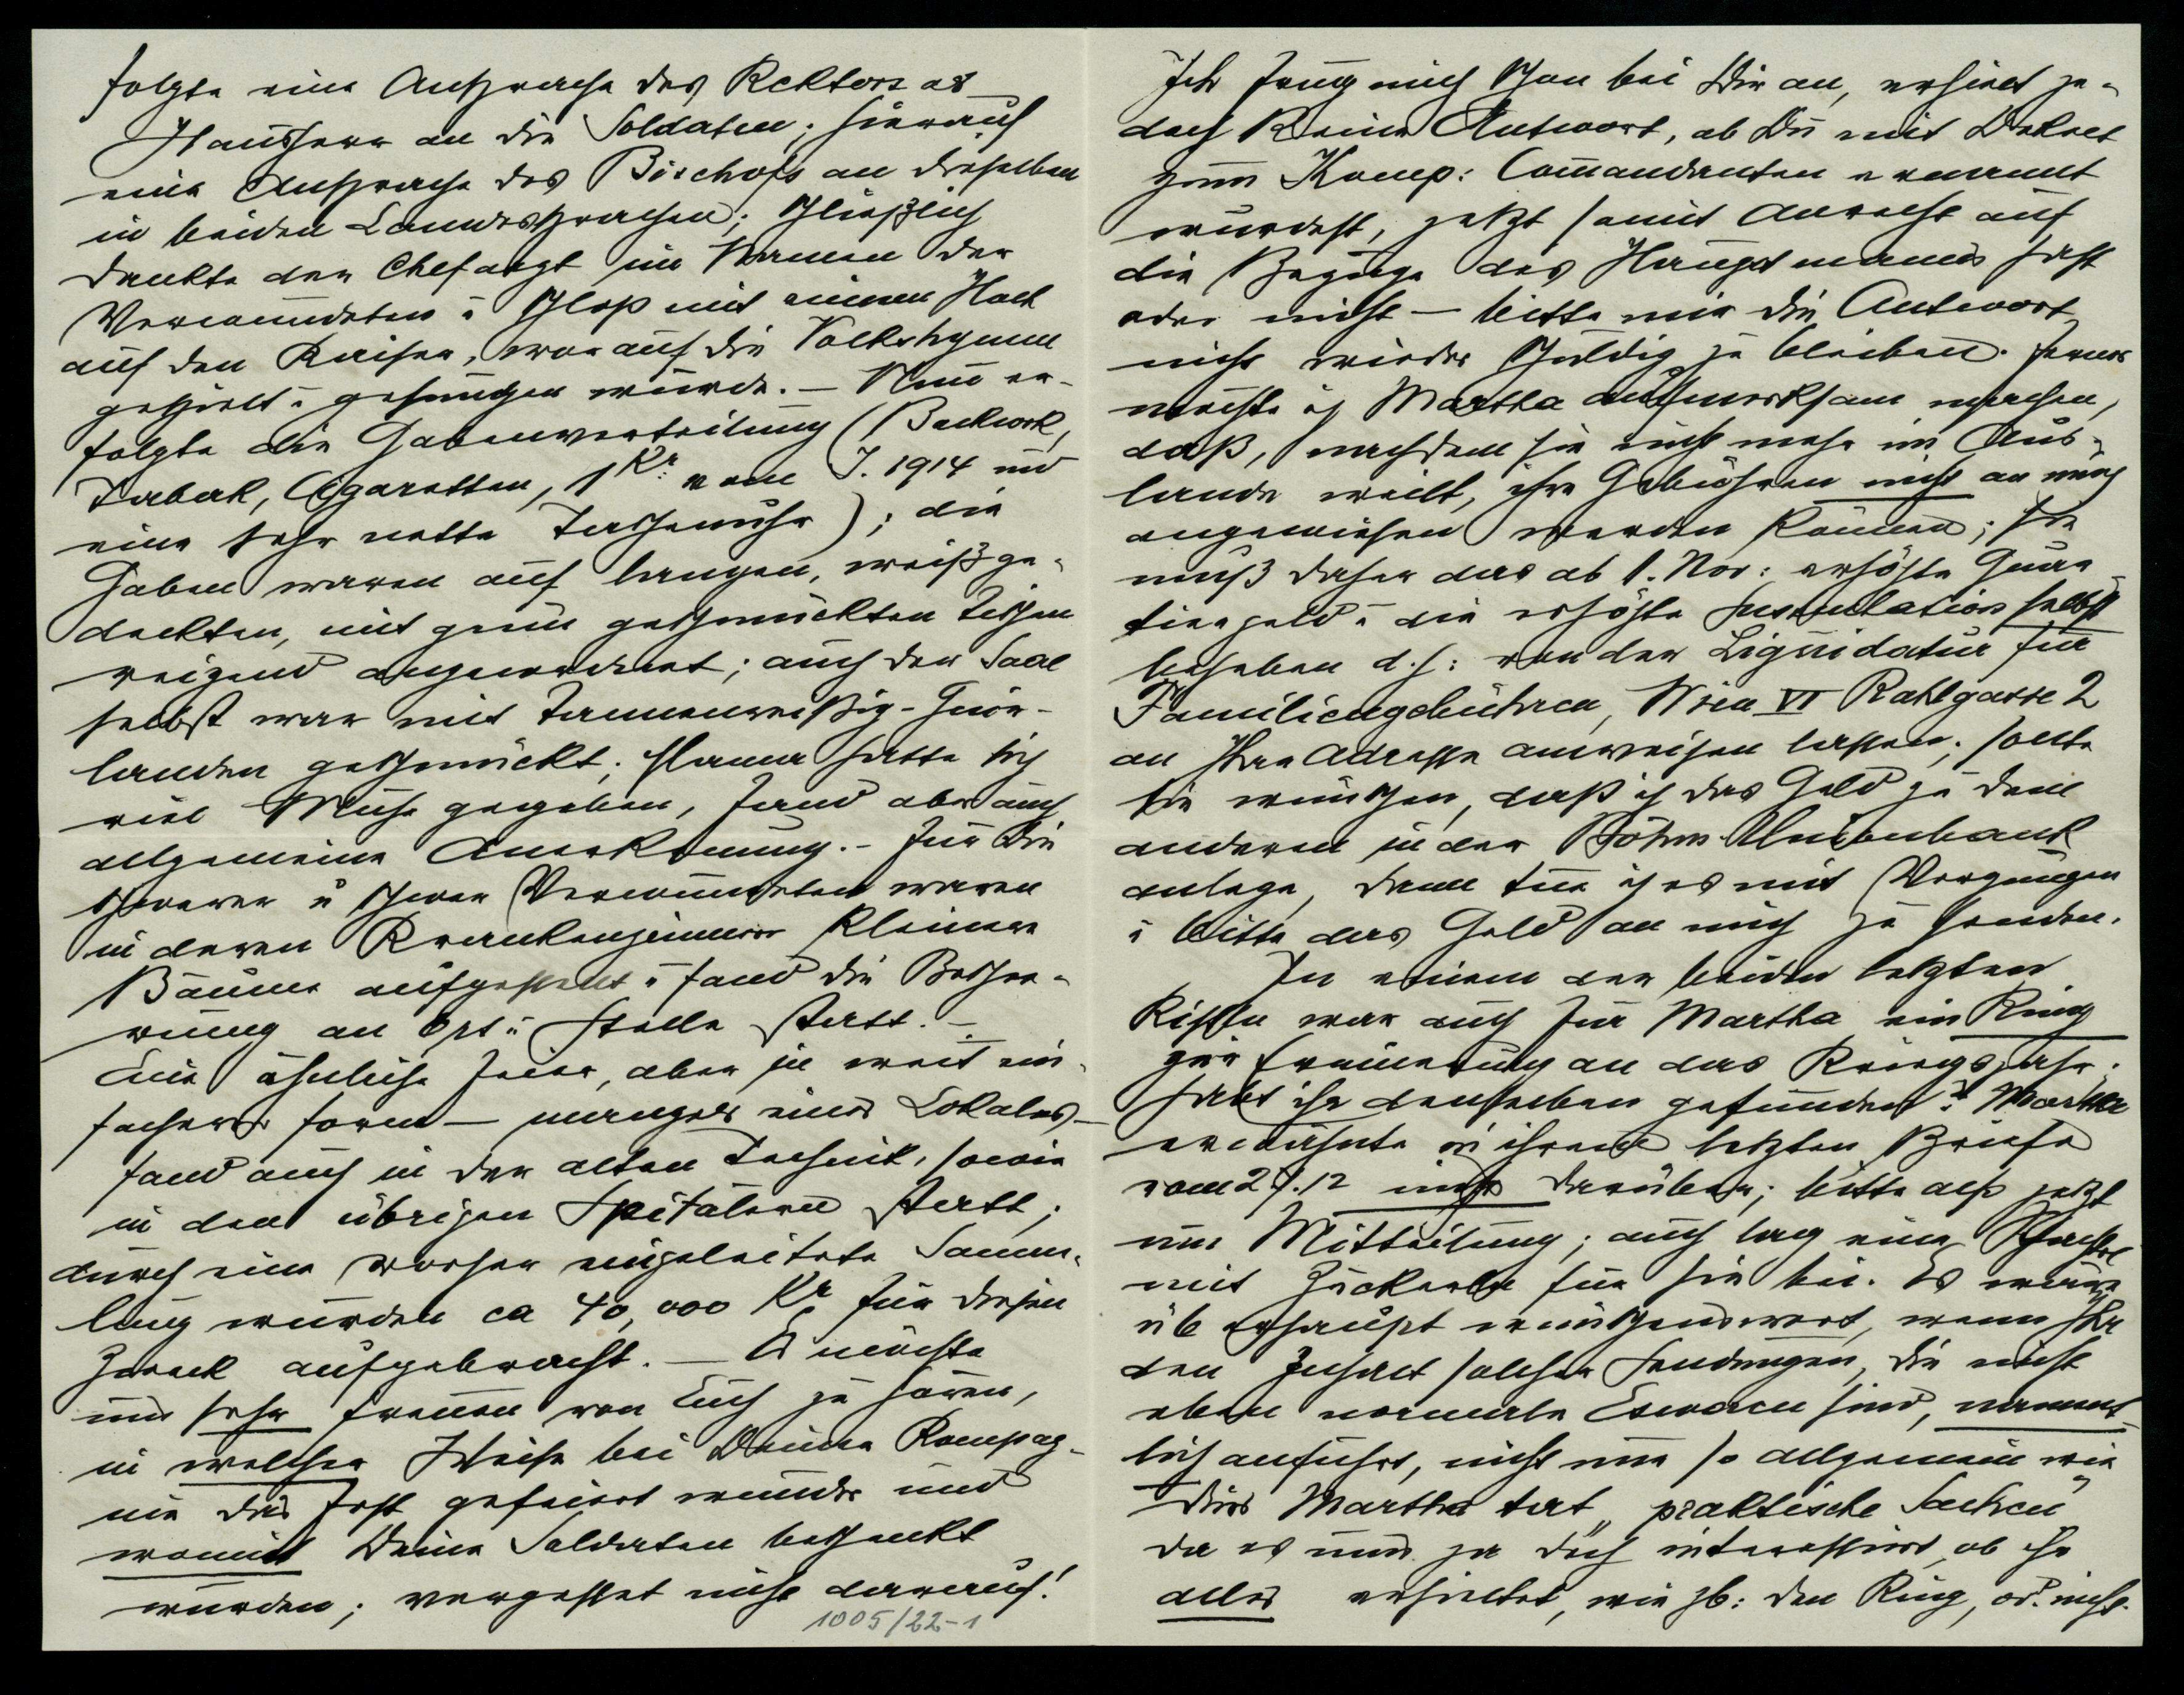 folgte eine Ansprache des Rektors als
Hausherr an die Soldaten; hierauf
eine Ansprache des Bischofs an dieselben
in beiden Landessprachen; schließlich
dankte der Chefarzt im Namen der
Verwundeten u. schloß mit einem Hoch
auf den Kaiser, worauf die Volkshymne
gespielt u. gesungen wurde. – Nun er-
folgte die Gabenverteilung (Backwerk,
Tabak, Cigaretten, 1 Kr: vom J. 1914 und
eine sehr nette Taschenuhr); die
Gaben waren auf langen, weißge-
deckten, mit grün geschmückten Tischen
reizend angeordnet; auch der Saal
selbst war mit Tannenreißig-Guir-
landen geschmückt; Mama hatte sich
viel Mühe gegeben, fand aber auch
allgemeine Anerkennung. – Für die
schweren u. Verwundeten waren
in deren Krankenzimmer kleinere
Bäume aufgestellt u. fand die Besche-
rung an Ort u. Stelle statt. –
Eine ähnliche Feier, aber in weit ein-
facherer Form – mangels eines Lokales –
fand auch in der alten Technik, sowie
in den übrigen Spitälern statt;
durch eine vorher eingeleitete Samm-
lung wurden ca 40,000 Kr für diesen
Zweck aufgebracht. – Es möchte
uns sehr freuen von Euch zu hören,
in welcher Weise bei Deiner Kompag-
nie das Fest gefeiert wurde und
womit Deine Soldaten beschenkt
wurden; vergesset nicht darauf!
1005/22-1
Ich frug mich schon bei Dir an, erhielt je-
doch keine Antwort, ob Du mit Dekret
zum Komp: Commandanten ernannt
wurdest, jetzt somit Anrecht auf
die Bezüge des Hauptmanns hast
oder nicht – bitte mir die Antwort
nicht wieder schuldig zu bleiben. Ferner
möchte ich Martha aufmerksam machen,
daß, nachdem sie nicht mehr im Aus-
lande weilt, ihre Gebühren nicht an mich
angewiesen werden können; sie
muß daher das ab 1. Nov: erhöhte Quar-
tiergeld u. die erhöhte selbst
beheben d.h: von der Liquidatur für
Familiengebühren, Wien VI Rahlgasse 2
an Ihre Adresse anweisen lassen; sollte
sie wünschen, daß ich das Geld zu dem
anderen in der Böhm. Unionbank
anlege, dann tue ich es mit Vergnügen
u. bitte das Geld an mich zu senden.
In einem der beiden letzten
Kistln war auch für Martha ein Ring
zur Erinnerung an das Kriegsjahr;
habt ihr denselben gefunden? Martha
erwähnte in ihrem letzten Briefe
vom 27.12 nichts darüber; bitte also jetzt
um Mitteilung; auch lag eine Schachtel
mit Zuckerln für sie bei. Es wäre
überhaupt wünschenswert, wenn Ihr
den Inhalt solcher Sendungen, die nicht
eben normale Esswaren sind, nament-
lich anführt, nicht nur so allgemein wie
dies Martha tat „praktische Sachen“
da es uns ja doch interessiert, ob ihr
alles erhieltet, wie zb: den Ring, od. nicht.